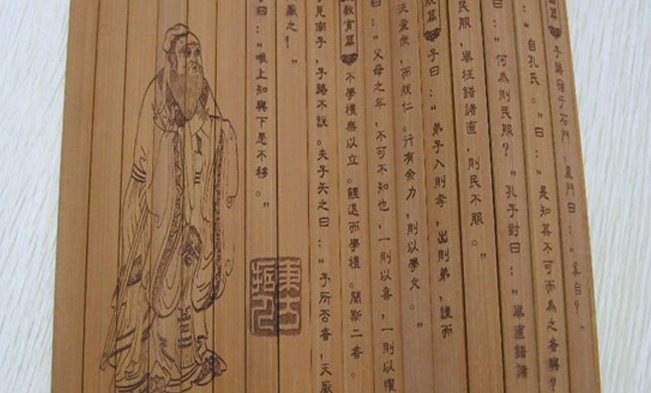 篇 子路宿于石門。晨門曰:“奚自?”
“自孔氏。”曰:“是知其不可而為之者與?
曰:“何為則民服?”孔子對曰:“舉直錯諸
民服,舉枉錯諸直,則民不服。”
篇 子曰:“弟子入則孝,出則弟,謹而
愛眾,而親仁。行有余力,則以學文。”
曰:“父母之年,不可不知也,一則以喜,一則以懼
教育篇 不學禮無以立。鯉退而學禮。聞斯二者
見南子,子路不說。夫子矢之曰:“予所否者,天厭
厭之!”
曰:“唯上知與下愚不移。”